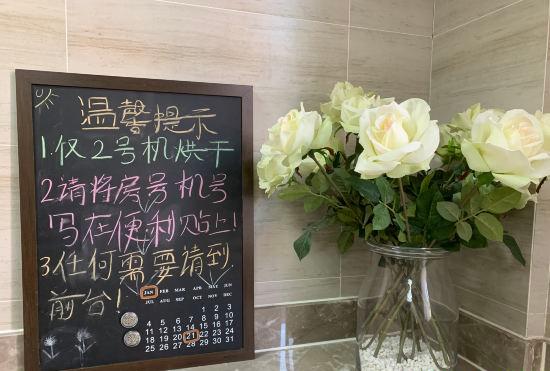 温馨提示
1.仅2号机烘干
2.请将房号机号
写在便利贴上!
3.任何需要请到
前台!
JAN FEB MAR APR MAY JUN
JUL AUG SEP OCT NOV DEC
1 2 3
4 5 6 7 8 9 10
11 12 13 14 15 16 17
18 19 20 21 22 23 24
25 26 27 28 29 30 31